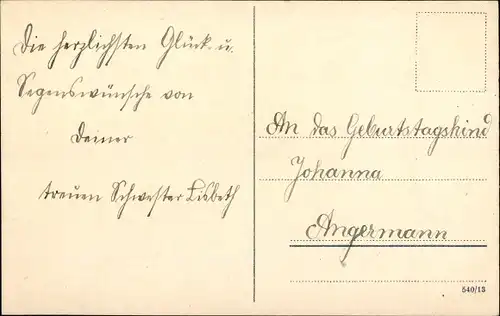 Die herzlichsten Glück- u.
Segenswünsche von
Deiner
treuen Schwester Lisbeth
An das Geburtstagskind
Johanna
Angermann
540/13